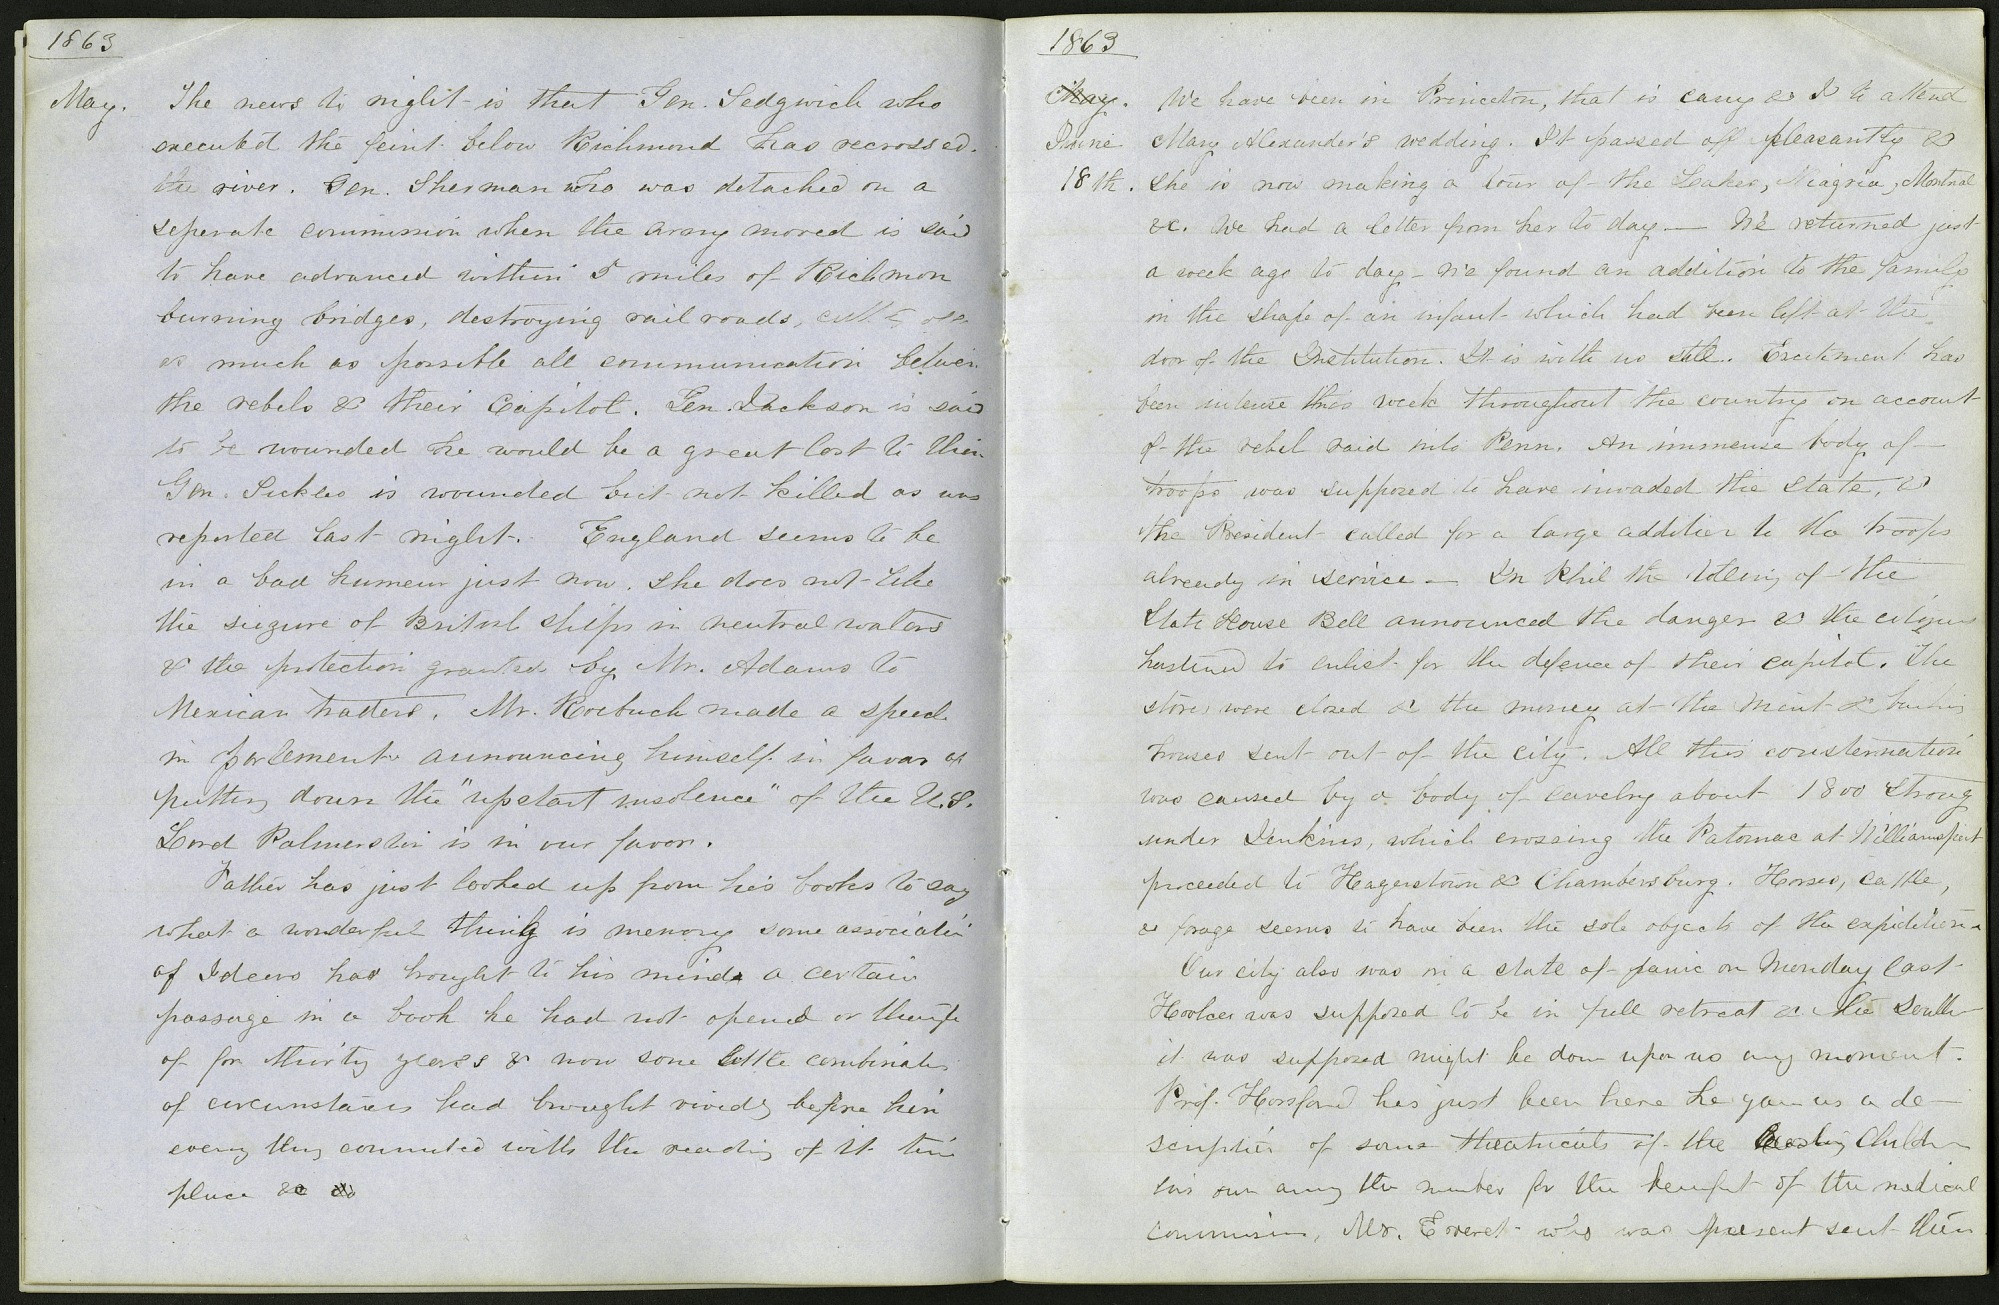 1863
May. The news to night is that Gen. Sedgwick who
executed the feint below Richmond has recrossed.
the river. Gen. Sherman who was detached on a
seperate commission when the army moved is said
to have advanced within 5 miles of Richmon
burning bridges, destroying rail roads,
as much as possible all communication between
the rebels & their Capitol. Gen. Jackson is said
to be wounded he would be a great lost to them
Gen. Sickles is wounded but not killed as was
reported last night. England seems to be
in a bad humeur just now. She does not like
the siezure of British ships in neutral waters
& the protection granted by Mr. Adams to
Mexican traders. Mr. Roebuck made a speech
in parlement announcing himself in favor of
putting down the "upstart insolence" of the U.S.
Lord Palmerston is in our favor.
Father has just looked up from his books to say
what a wonderful thing is memory some association
of Ideas has brought to his mind a certain
passage in a book he had not opened or thought
of for thirty years & now some little combination
of circumstances had brought vividly before him
every thing connected with the reading of it time
place &c
1863
May. We have been in Princeton, that is Carry & I to attend
June Mary Alexander's wedding. It passed off pleasantly &
18th. She is now making a tour of the Lakes, Niagria, Montreal
&c. We had a letter from her to day — We returned just
a week ago to day – We found an addition to the family
in the shape of an infant which had been left at the
door of the Institution. It is with us still. Excitement has
been intense this week throughout the country on account
of the rebel raid into Penn. An immense body of
troops was supposed to have invaded the state, &
the President called for a large addition to the troops
already in service — In Phil the tolling of the
State House Bell announced the danger & the citizens
hastened to enlist for the defence of their capitol. The
stores were closed & the money at the Mint & banking
houses sent out of the city. All this consternation
was caused by a body of cavelry about 1800 strong
under Jenkins, which crossing the Patomac at Williamsport
proceeded to Hagerstown & Chambersburg. Horses, cattle,
& forage seems to have been the sole objects of the expidition.
Our city also was in a state of panic on Monday last
Hooker was supposed to be in full retreat & the South
it was supposed might be down upon us any moment.
Prof. Horsford has just been here he gave us a de-
scription of some theatricals of the Children
his own among the number for the benefit of the medical
commission, Mr. Everet who was present sent them